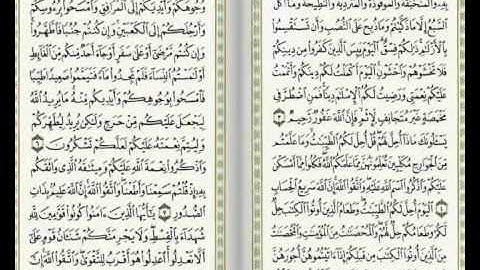 بِهِۦ وَٱلْمُنْخَنِقَةُ وَٱلْمَوْقُوذَةُ وَٱلْمُتَرَدِّيَةُ وَٱلنَّطِيحَةُ وَمَآ أَكَلَ
ٱلسَّبُعُ إِلَّا مَا ذَكَّيْتُمْ وَمَا ذُبِحَ عَلَى ٱلنُّصُبِ وَأَن تَسْتَقْسِمُوا۟
بِٱلْأَزْلَٰمِ ذَٰلِكُمْ فِسْقٌ ٱلْيَوْمَ يَئِسَ ٱلَّذِينَ كَفَرُوا۟ مِن دِينِكُمْ
فَلَا تَخْشَوْهُمْ وَٱخْشَوْنِ ٱلْيَوْمَ أَكْمَلْتُ لَكُمْ دِينَكُمْ وَأَتْمَمْتُ
عَلَيْكُمْ نِعْمَتِى وَرَضِيتُ لَكُمُ ٱلْإِسْلَٰمَ دِينًا فَمَنِ ٱضْطُرَّ فِى
مَخْمَصَةٍ غَيْرَ مُتَجَانِفٍ لِّإِثْمٍ فَإِنَّ ٱللَّهَ غَفُورٌ رَّحِيمٌ ٣
يَسْـَٔلُونَكَ مَاذَآ أُحِلَّ لَهُمْ قُلْ أُحِلَّ لَكُمُ ٱلطَّيِّبَٰتُ وَمَا عَلَّمْتُم
مِّنَ ٱلْجَوَارِحِ مُكَلِّبِينَ تُعَلِّمُونَهُنَّ مِمَّا عَلَّمَكُمُ ٱللَّهُ فَكُلُوا۟ مِمَّآ أَمْسَكْنَ
عَلَيْكُمْ وَٱذْكُرُوا۟ ٱسْمَ ٱللَّهِ عَلَيْهِ وَٱتَّقُوا۟ ٱللَّهَ إِنَّ ٱللَّهَ سَرِيعُ ٱلْحِسَابِ
٤ ٱلْيَوْمَ أُحِلَّ لَكُمُ ٱلطَّيِّبَٰتُ وَطَعَامُ ٱلَّذِينَ أُوتُوا۟ ٱلْكِتَٰبَ حِلٌّ
لَّكُمْ وَطَعَامُكُمْ حِلٌّ لَّهُمْ وَٱلْمُحْصَنَٰتُ مِنَ ٱلْمُؤْمِنَٰتِ وَٱلْمُحْصَنَٰتُ
مِنَ ٱلَّذِينَ أُوتُوا۟ ٱلْكِتَٰبَ مِن قَبْلِكُمْ إِذَآ ءَاتَيْتُمُوهُنَّ أُجُورَهُنَّ
وُجُوهَكُمْ وَأَيْدِيَكُمْ إِلَى ٱلْمَرَافِقِ وَٱمْسَحُوا۟ بِرُءُوسِكُمْ
وَأَرْجُلَكُمْ إِلَى ٱلْكَعْبَيْنِ وَإِن كُنتُمْ جُنُبًا فَٱطَّهَّرُوا۟
وَإِن كُنتُم مَّرْضَىٰٓ أَوْ عَلَىٰ سَفَرٍ أَوْ جَآءَ أَحَدٌ مِّنكُم مِّنَ ٱلْغَآئِطِ
أَوْ لَٰمَسْتُمُ ٱلنِّسَآءَ فَلَمْ تَجِدُوا۟ مَآءً فَتَيَمَّمُوا۟ صَعِيدًا طَيِّبًا
فَٱمْسَحُوا۟ بِوُجُوهِكُمْ وَأَيْدِيكُم مِّنْهُ مَا يُرِيدُ ٱللَّهُ
لِيَجْعَلَ عَلَيْكُم مِّنْ حَرَجٍ وَلَٰكِن يُرِيدُ لِيُطَهِّرَكُمْ
وَلِيُتِمَّ نِعْمَتَهُۥ عَلَيْكُمْ لَعَلَّكُمْ تَشْكُرُونَ ٦
وَٱذْكُرُوا۟ نِعْمَةَ ٱللَّهِ عَلَيْكُمْ وَمِيثَٰقَهُ ٱلَّذِى وَاثَقَكُم
بِهِۦٓ إِذْ قُلْتُمْ سَمِعْنَا وَأَطَعْنَا وَٱتَّقُوا۟ ٱللَّهَ إِنَّ ٱللَّهَ عَلِيمٌۢ بِذَاتِ
ٱلصُّدُورِ ٧ يَٰٓأَيُّهَا ٱلَّذِينَ ءَامَنُوا۟ كُونُوا۟ قَوَّٰمِينَ لِلَّهِ
شُهَدَآءَ بِٱلْقِسْطِ وَلَا يَجْرِمَنَّكُمْ شَنَـَٔانُ قَوْمٍ عَلَىٰٓ
أَلَّا تَعْدِلُوا۟ ٱعْدِلُوا۟ هُوَ أَقْرَبُ لِلتَّقْوَىٰ وَٱتَّقُوا۟ ٱللَّهَ إِنَّ